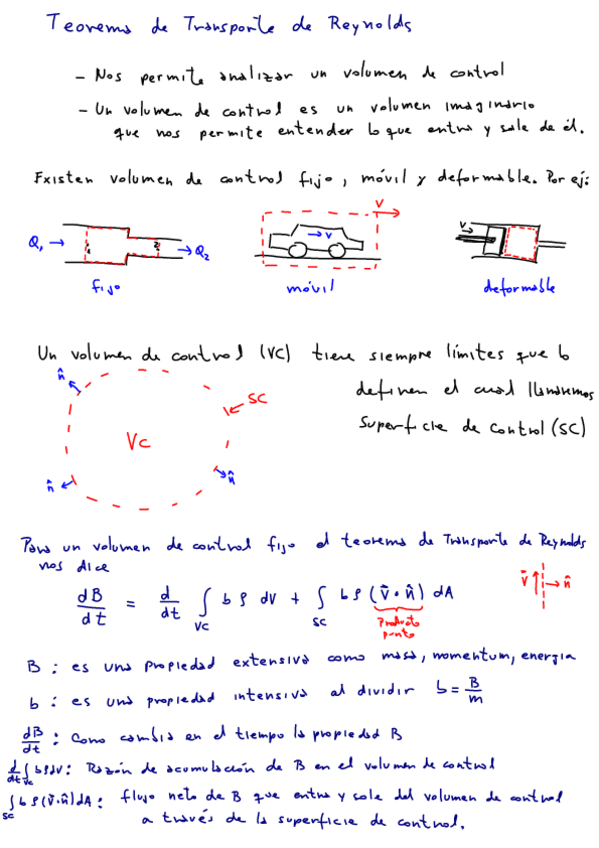 Teorema de Transporte de Reynolds
- Nos permite analizar un volumen de control
- Un volumen de control es un volumen imaginario
que nos permite entender lo que entra y sale de él.
Existen volumen de control fijo, móvil y deformable. Por ej:
Q₁ → 1 2 → Q₂
V
v
V
fijo
móvil
deformable
Un volumen de control (VC) tiene siempre límites que lo
definen el cual llamaremos
Superficie de control (SC)
n̂
SC
VC
n̂
n̂
Para un volumen de control fijo el teorema de Transporte de Reynolds
nos dice
dB/dt = d/dt ∫_VC b ρ dV + ∫_SC b ρ (v̄ • n̂) dA
Producto
punto
v̄ n̂
B : es una propiedad extensiva como masa, momentum, energia
b : es una propiedad intensiva al dividir b = B/m
dB/dt : Como cambia en el tiempo la propiedad B
d/dt ∫_VC bρdV : Razón de acumulación de B en el volumen de control
∫_SC b ρ (v̄•n̂) dA : flujo neto de B que entra y sale del volumen de control
a través de la superficie de control.